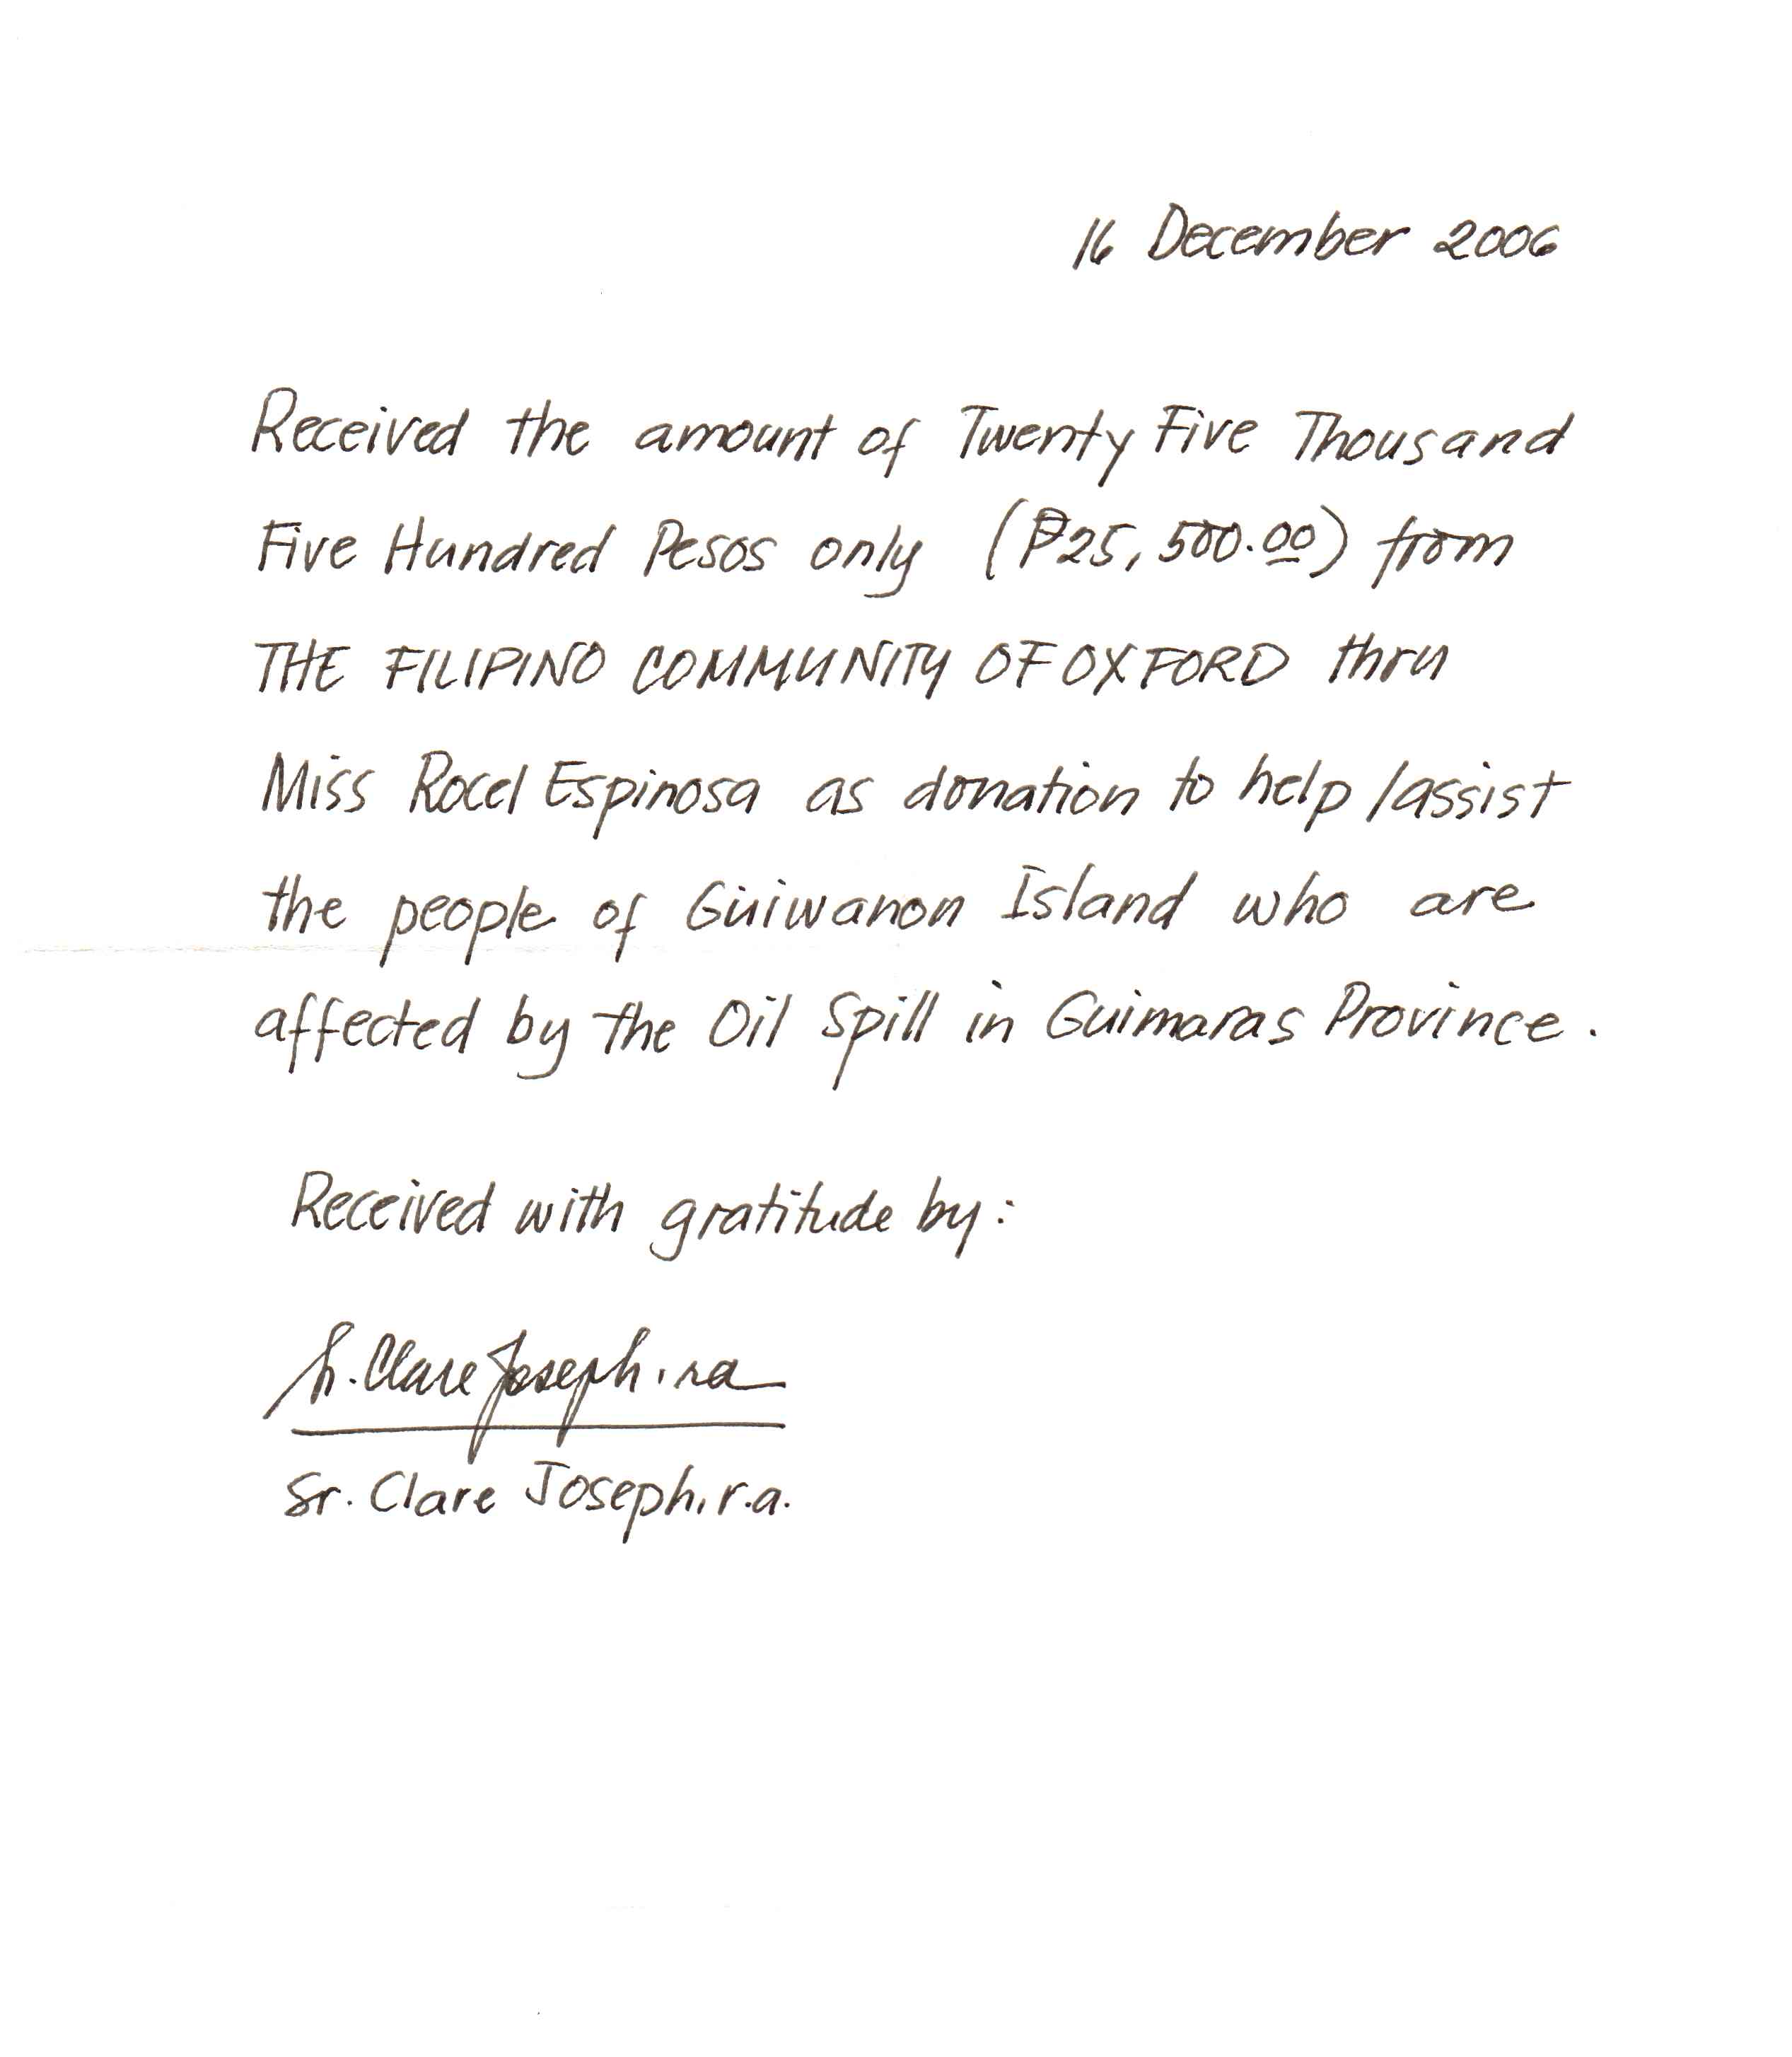 16 December 2006
Received the amount of Twenty Five Thousand
Five Hundred Pesos only (₱25,500.00) from
THE FILIPINO COMMUNITY OF OXFORD thru
Miss Rocel Espinosa as donation to help/assist
the people of Guiwanon Island who are
affected by the Oil Spill in Guimaras Province.
Received with gratitude by:
Sr. Clare Joseph, ra
Sr. Clare Joseph, r.a.